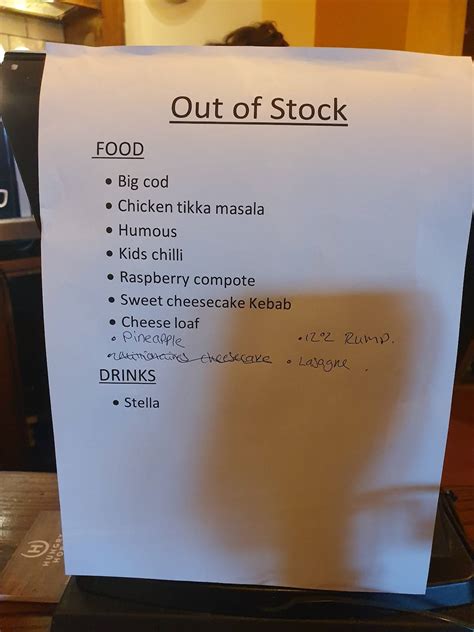 Out of Stock
FOOD
• Big cod
• Chicken tikka masala
• Humous
• Kids chilli
• Raspberry compote
• Sweet cheesecake Kebab
• Cheese loaf
• Pineapple • 12oz Rump.
• cheesecake • Lasagne
DRINKS
• Stella